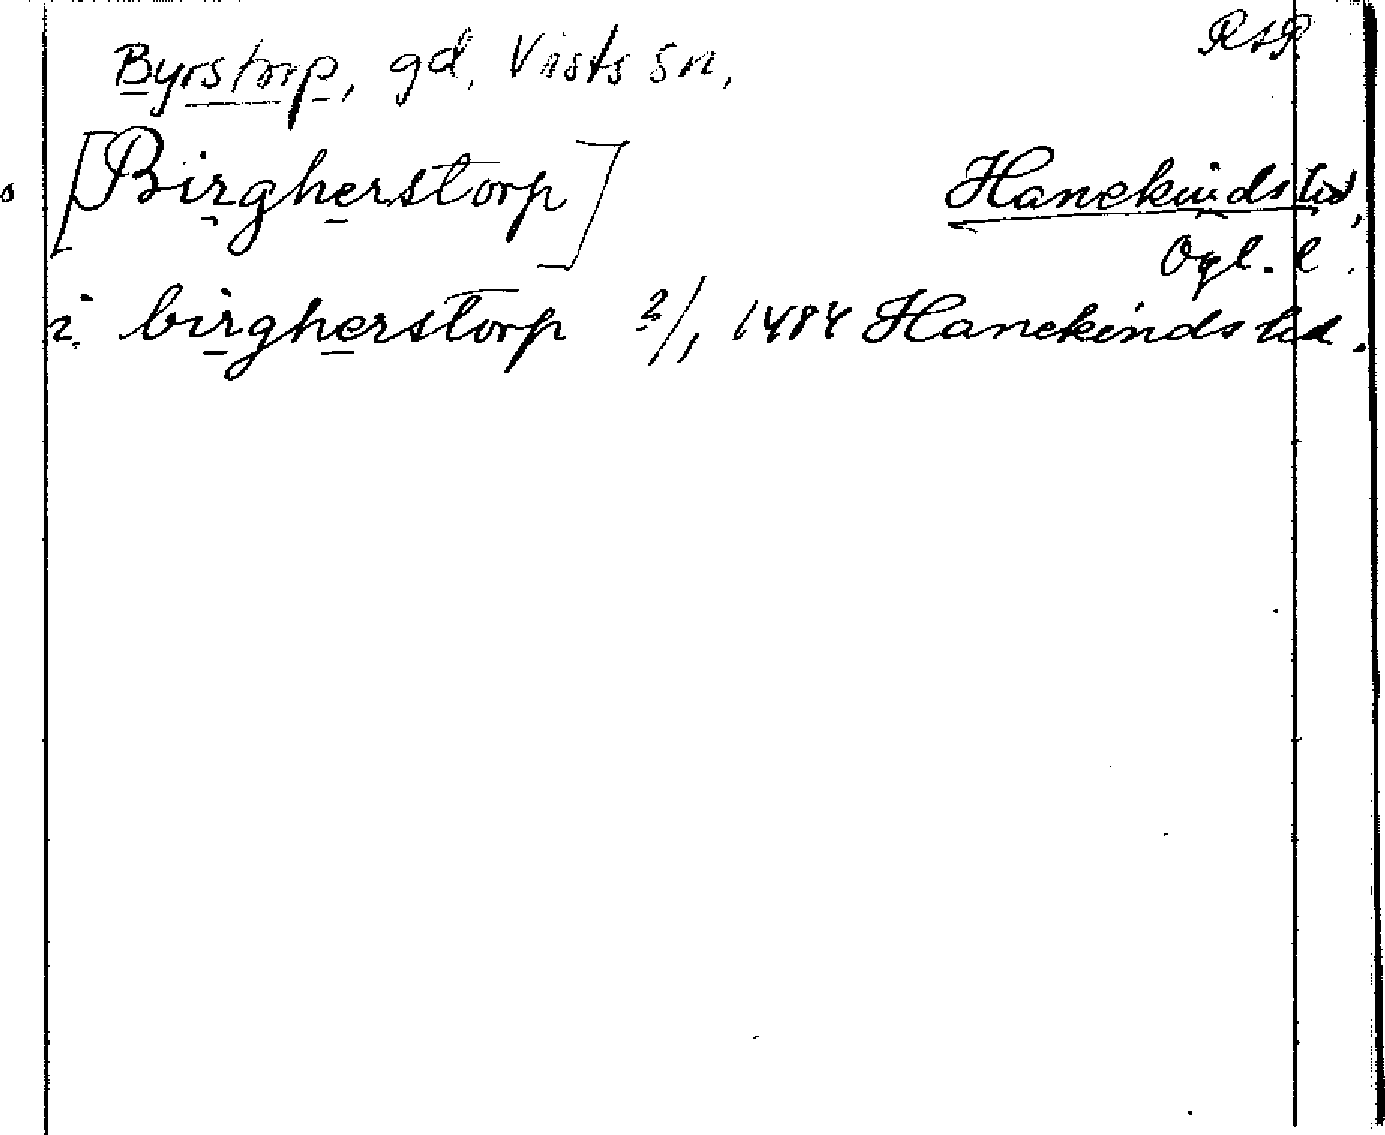 Byrstorp, gd, Vists sn,
[Birgherstorp] Hanekinds hd,
Ögl. l.
i birgherstorp 2/1 1484 Hanekinds hd.